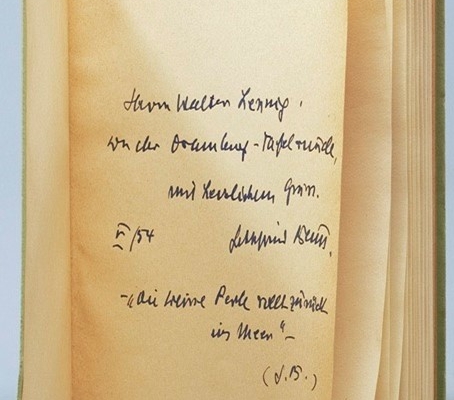 Herrn Walter Lennig,
von der Dramburg-Tafelrunde,
mit herzlichem Gruss.
/54 Gottfried Benn.
-"die weisse Perle rollt zurück
ins Meer"-
(G.B.)